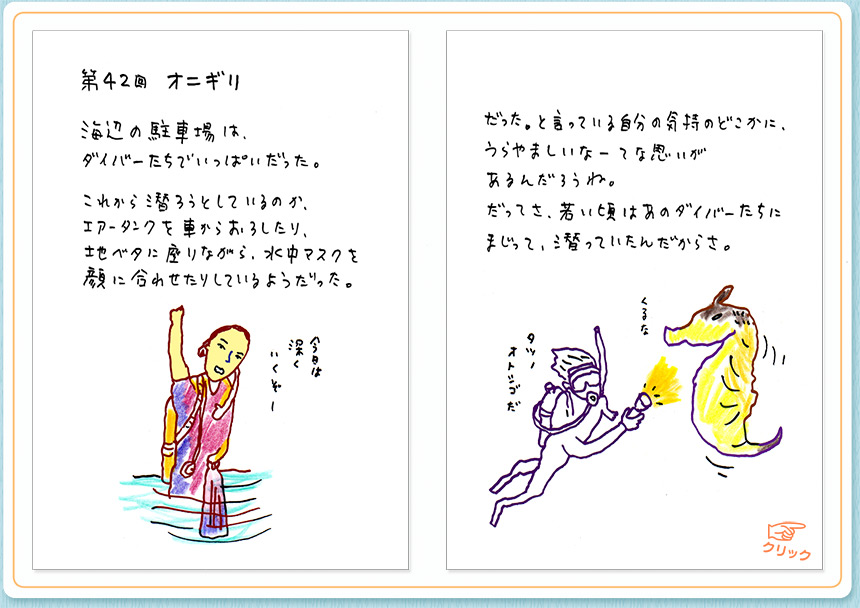 第42回 オニギリ
海辺の駐車場は、
ダイバーたちでいっぱいだった。
これから潜ろうとしているのか、
エアータンクを車からおろしたり、
地ベタに座りながら、水中マスクを
顔に合わせたりしているようだった。
今日は
深く
いくぞー
だった。と言っている自分の気持のどこかに、
うらやましいなーてな思いが
あるんだろうね。
だってさ、若い頃はあのダイバーたちに
まじって、潜っていたんだからさ。
くるな
タツノ
オトシゴだ
クリック